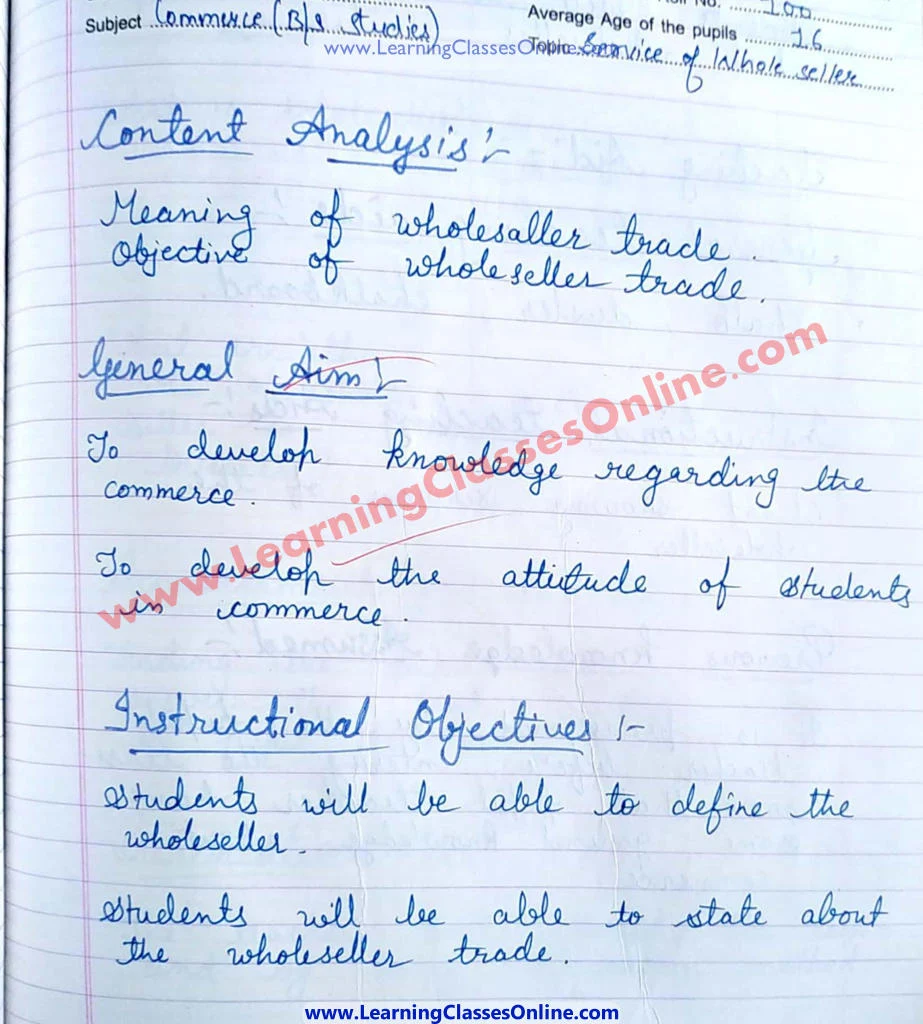 No. 100
Subject Commerce (B/s Studies)
Average Age of the pupils 16
www.LearningClassesOnline.com
Topic Service of Whole seller
Content Analysis :-
Meaning of wholesaller trade.
Objective of wholeseller trade.
General Aim :-
To develop knowledge regarding the
commerce.
www.LearningClassesOnline.com
To develop the attitude of students
in commerce.
Instructional Objectives :-
Students will be able to define the
wholeseller.
Students will be able to state about
the wholeseller trade.
www.LearningClassesOnline.com